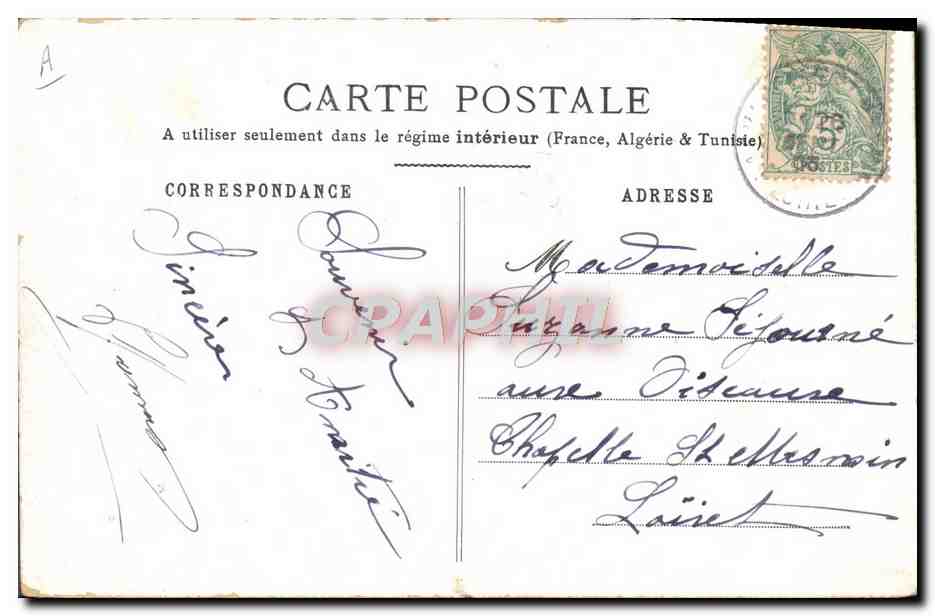 A
CARTE POSTALE
A utiliser seulement dans le régime intérieur (France, Algérie & Tunisie)
CORRESPONDANCE
Souvenir
d'Amitié
Sincère
ADRESSE
Mademoiselle
Suzanne Séjourné
aux Oiseaux
Chapelle St Mesmin
Loiret
5
POSTES
CPAPHIL